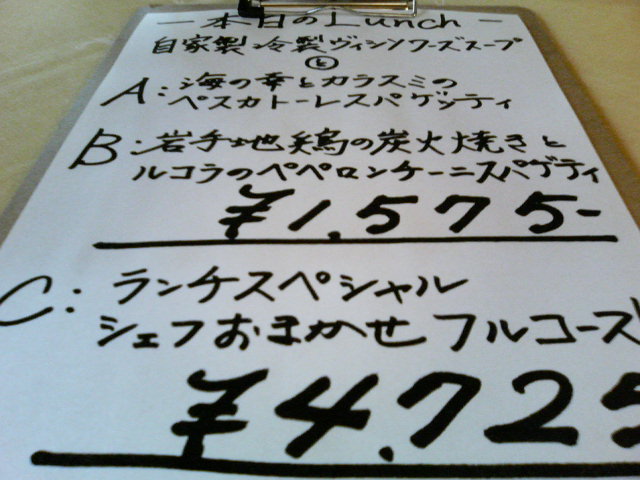 ー本日のLunchー
自家製冷製ヴィシソワーズスープ
と
A:海の幸とカラスミの
ペスカトーレスパゲッティ
B:岩手地鶏の炭火焼きと
ルコラのペペロンケーニスパゲティ
¥1,575-
C:ランチスペシャル
シェフおまかせフルコース
¥4,725